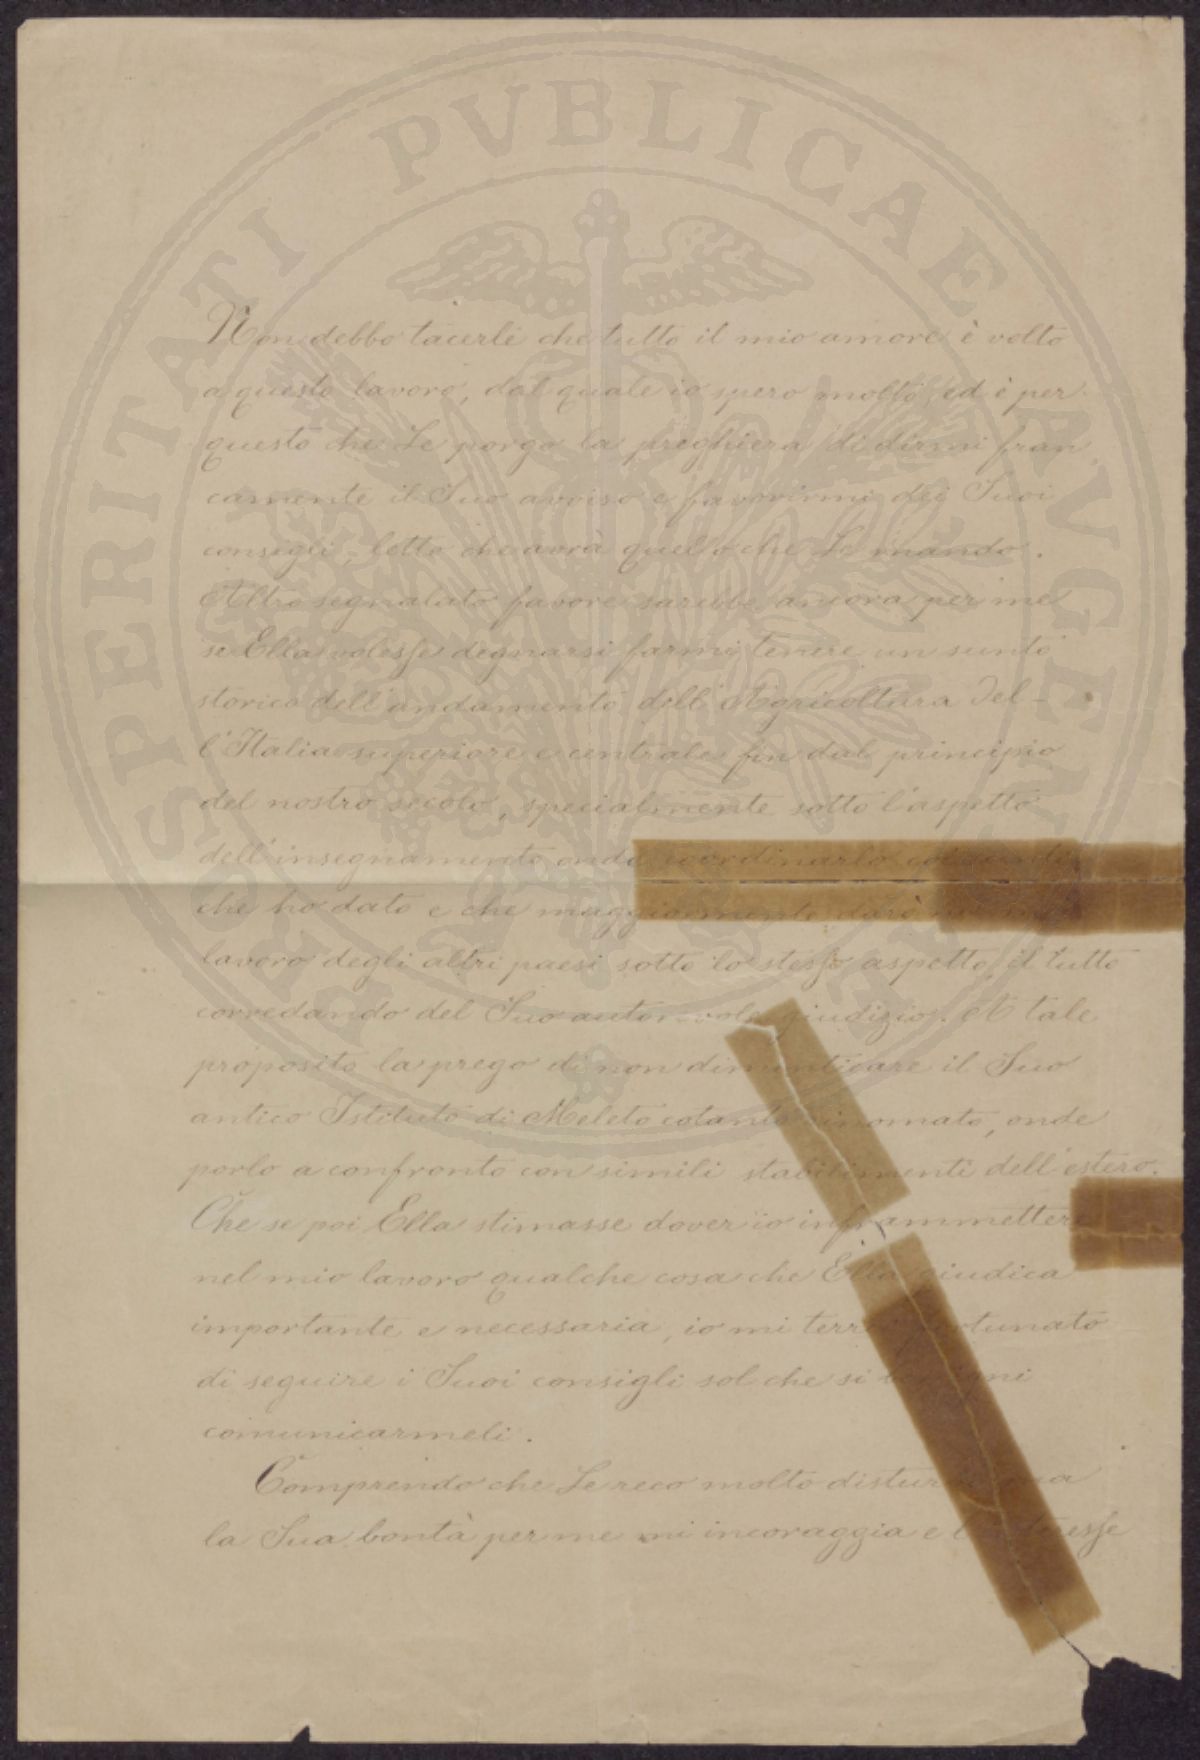 PROSPERITATI PVBLICAE AVGENDAE
Non debbo tacerle che tutto il mio amore è volto
a questo lavoro, dal quale io spero molto, ed è per
questo che Le porgo la preghiera di dirmi fran
camente il Suo avviso e favorirmi dei Suoi
consigli, letto che avrà quello che Le mando.
Altro segnalato favore sarebbe ancora per me
se Ella volesse degnarsi farmi tenere un sunto
storico dell'andamento dell'Agricoltura del-
l'Italia superiore e centrale fin dal principio
del nostro secolo, specialmente sotto l'aspetto
dell'insegnamento onde coordinarlo
che ho dato e che maggiormente darò
lavoro degli altri paesi sotto lo stesso aspetto, il tutto
corredando del Suo autorevole giudizio. A tale
proposito la prego di non dimenticare il Suo
antico Istituto di Meleto cotanto rinomato, onde
porlo a confronto con simili stabilimenti dell'estero.
Che se poi Ella stimasse dover io inframmettere
nel mio lavoro qualche cosa che Ella giudica
importante e necessaria, io mi terrò fortunato
di seguire i Suoi consigli sol che si degni
comunicarmeli.
Comprendo che Le reco molto disturbo, ma
la Sua bontà per me mi incoraggia e l'interesse